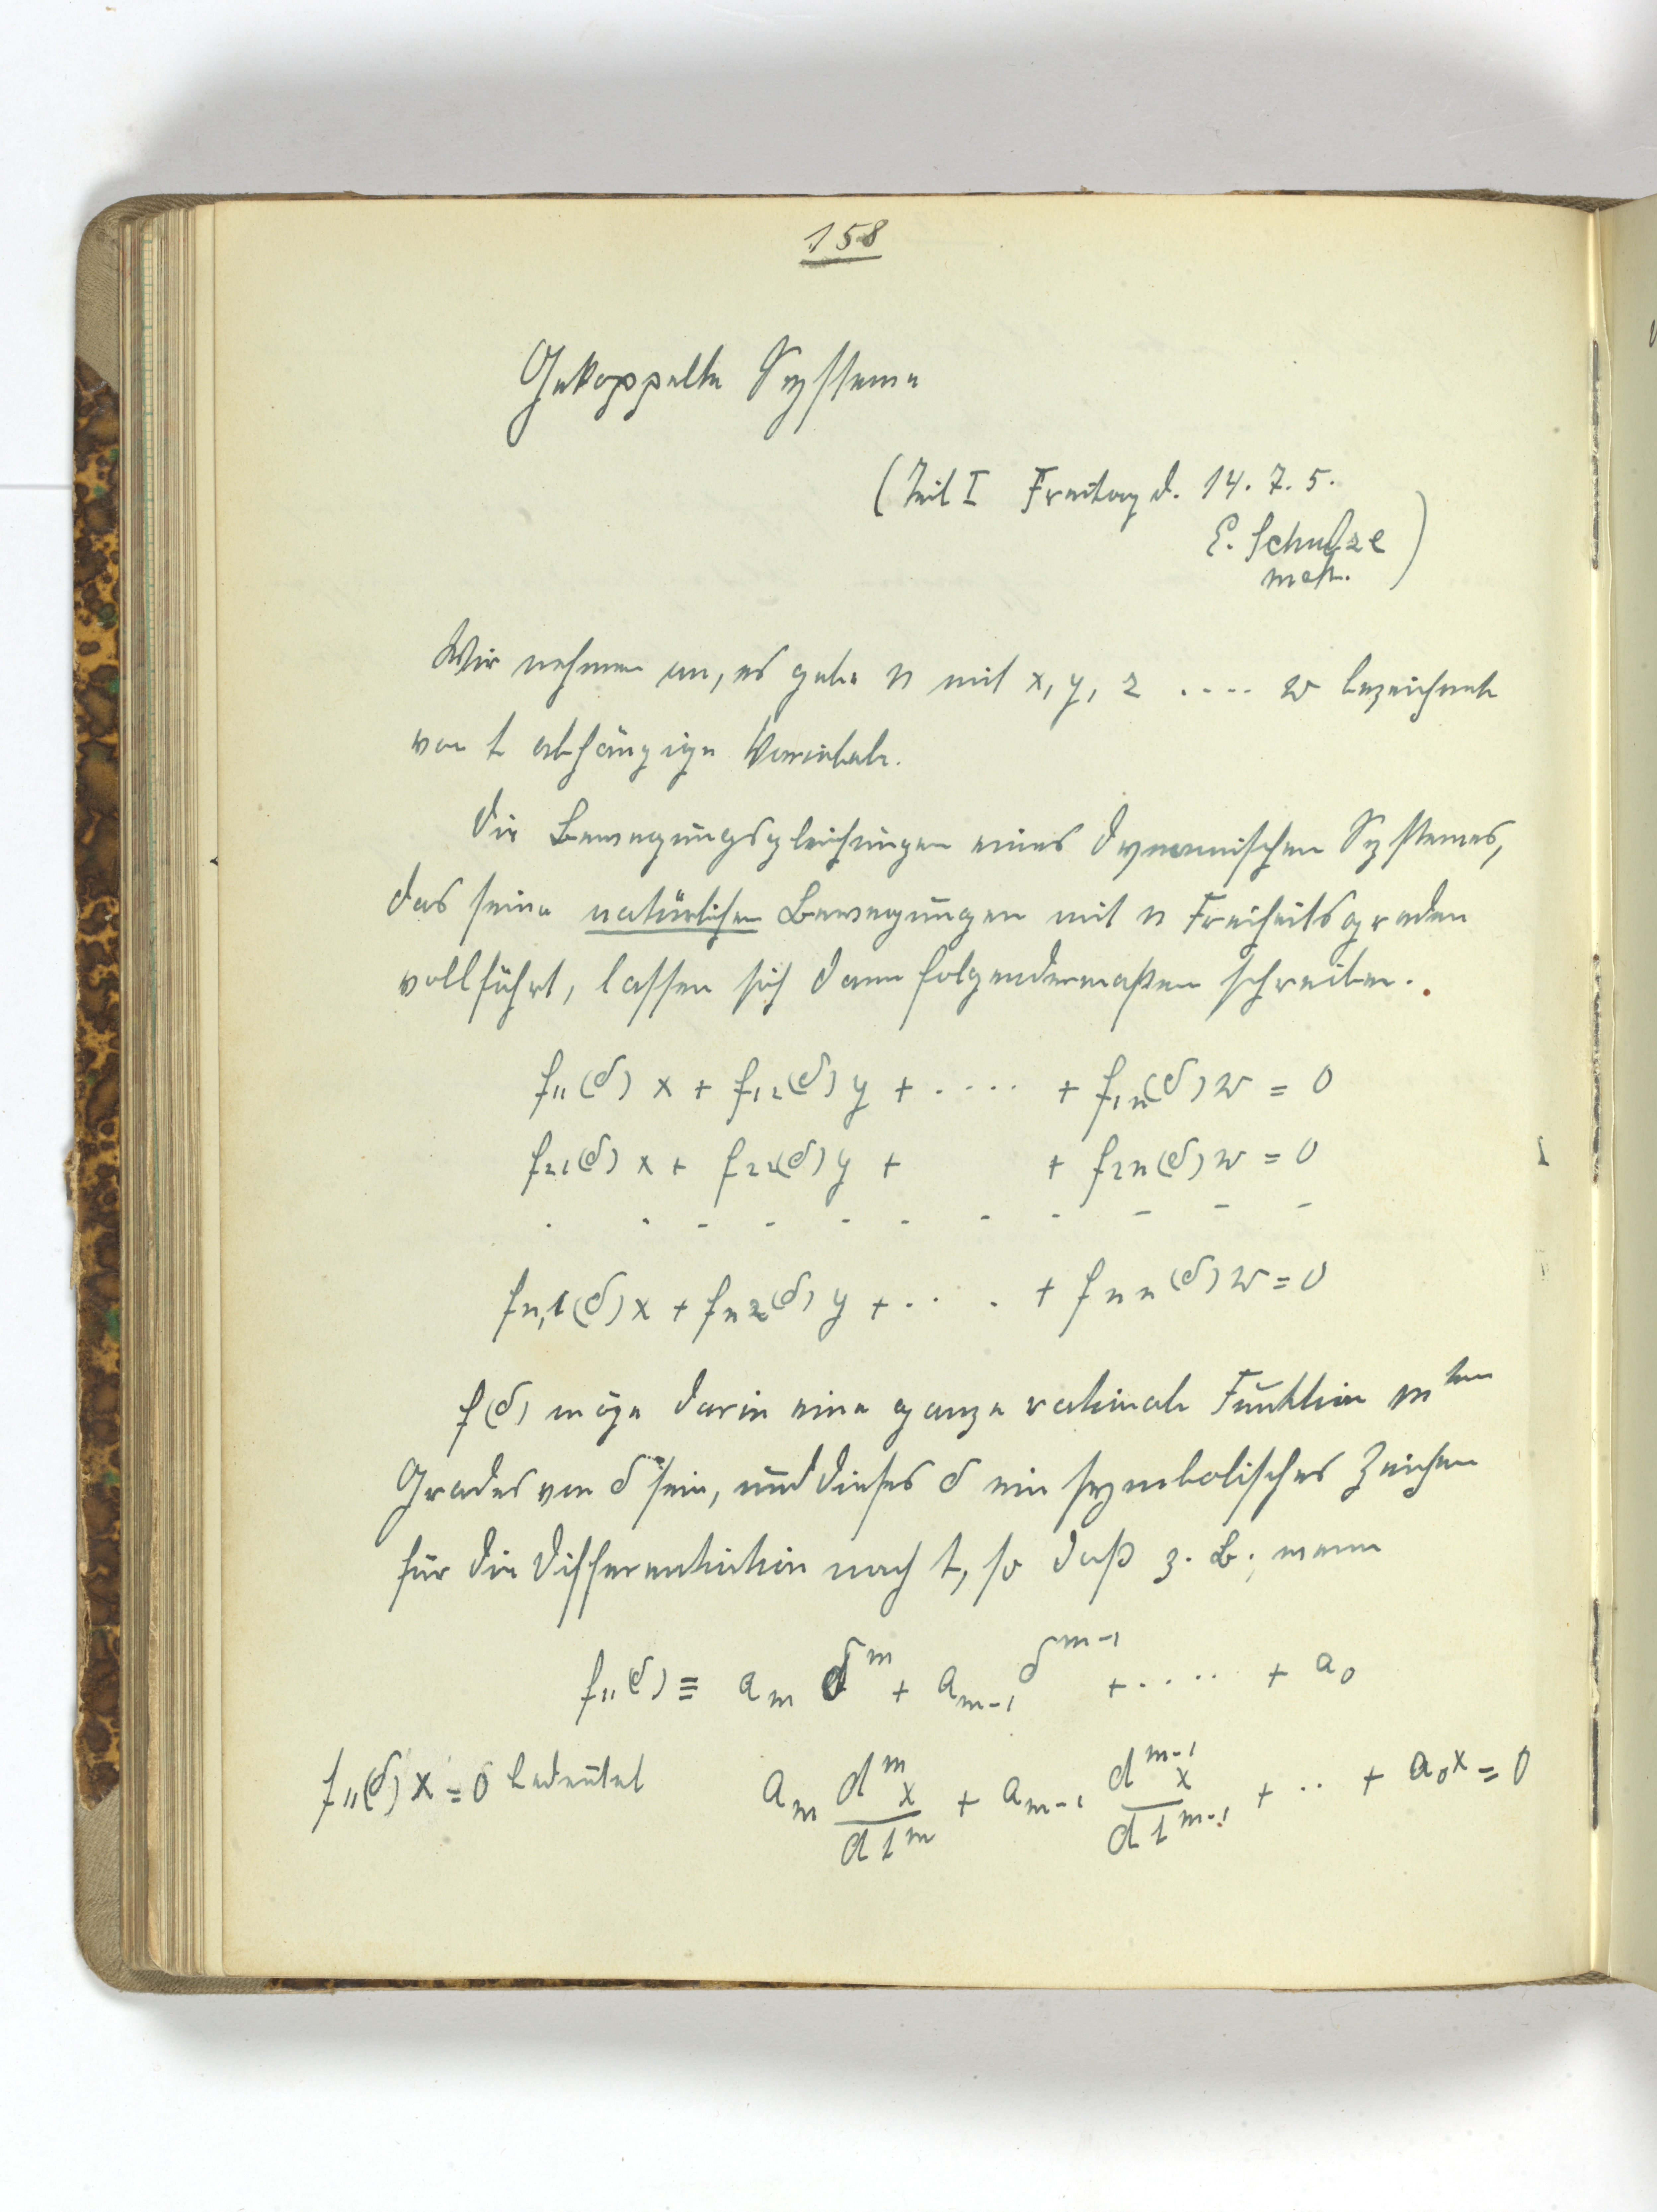 158
Gekoppelte Systeme
(Teil I Freitag d. 14. 7. 5.
E. Schulze
math.)
Wir nehmen an, es gebe n mit x, y, z .... w bezeichnete
von t abhängige Variabele.
Die Bewegungsgleichungen eines dynamischen Systemes,
das seine natürlichen Bewegungen mit n Freiheitsgraden
vollführt, lassen sich dann folgendermaßen schreiben.
f₁₁(δ) x + f₁₂(δ) y + ..... + f₁ₙ(δ) w = 0
f₂₁(δ) x + f₂₂(δ) y + + f₂ₙ(δ) w = 0
. . - - - - - - - - -
fₙ,₁(δ) x + fₙ₂(δ) y + ... . + fₙₙ(δ) w = 0
f(δ) möge darin eine ganze rationale Funktion mten
Grades von δ sein, und dieses δ ein symbolisches Zeichen
für die Differentiation nach t, so daß z. B., wenn
f₁₁(δ) ≡ a_m δ^m + a_{m-1} δ^{m-1} + ..... + a₀
f₁₁(δ) x = 0 bedeutet a_m d^m x / dt^m + a_{m-1} d^{m-1} x / dt^{m-1} + .. + a₀x = 0